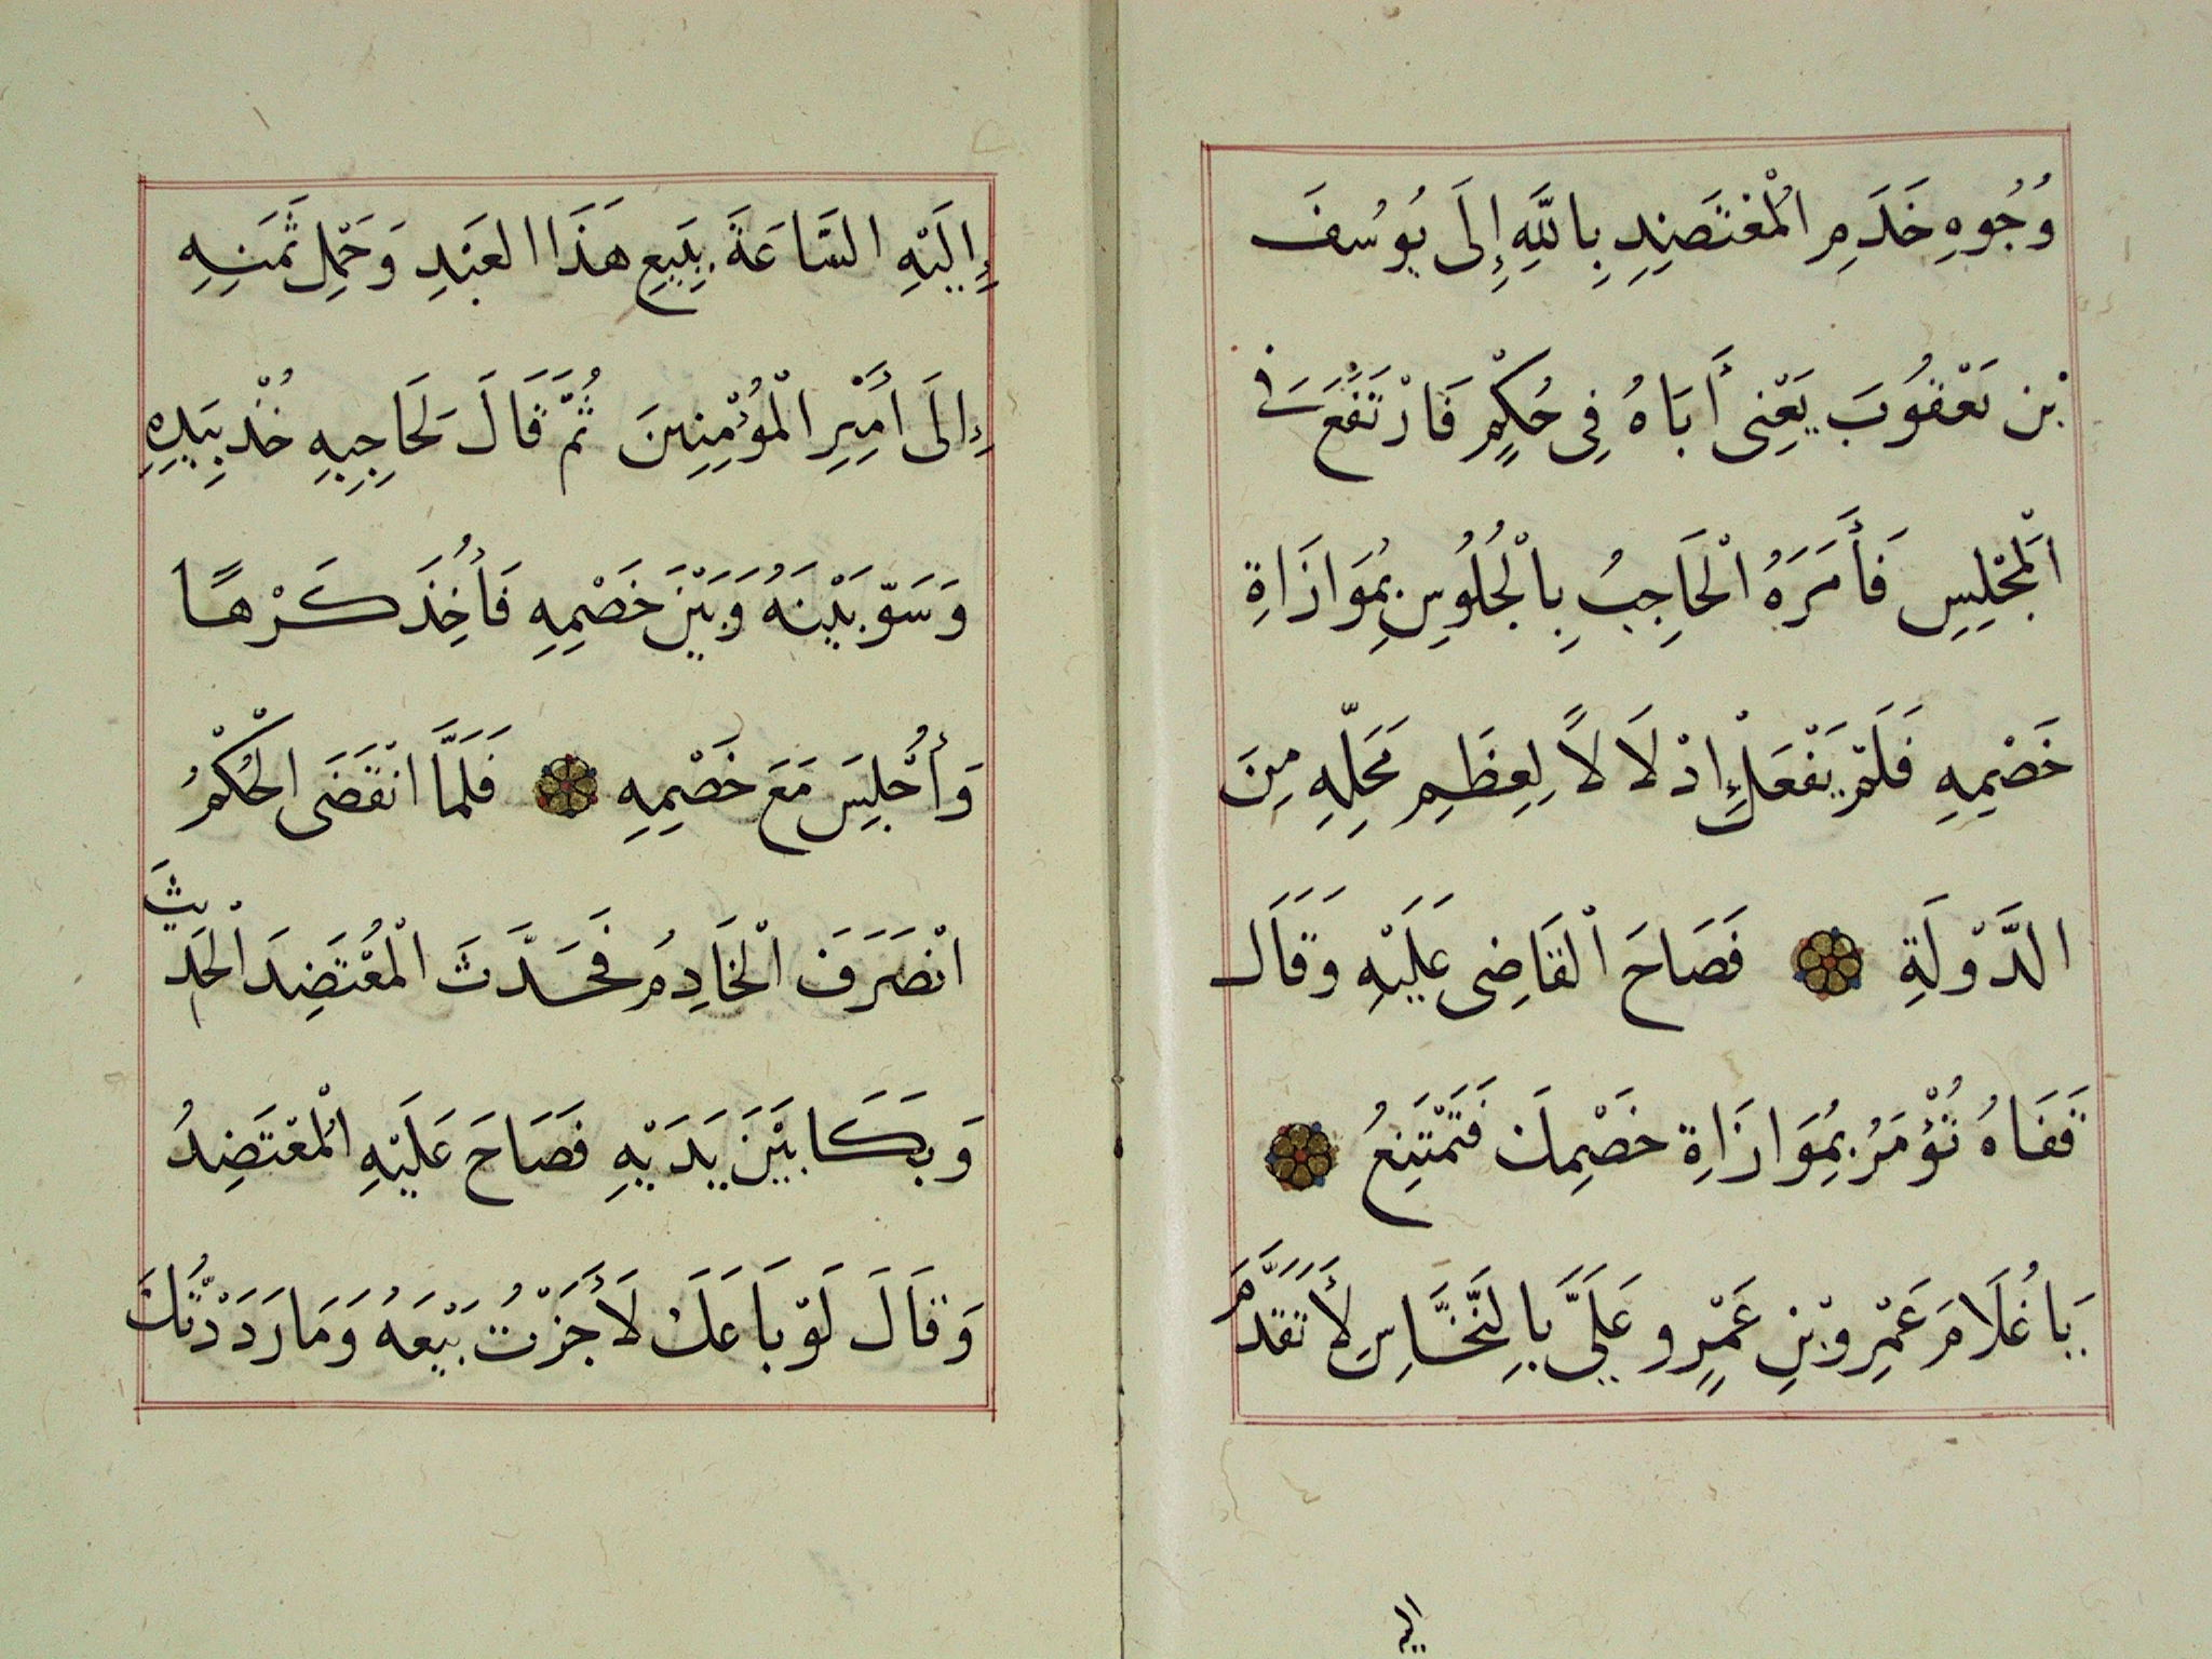 وُجُوهِ خَدَمِ الْمُعْتَضِدِ بِاللَّهِ إِلَى يُوسُفَ
بْنِ يَعْقُوبَ يَعْنِى أَبَاهُ فِى حُكْمٍ فَارْتَفَعَ فِى
الْمَجْلِسِ فَأَمَرَهُ الْحَاجِبُ بِالْجُلُوسِ بِمُوَازَاةِ
خَصْمِهِ فَلَمْ يَفْعَلْ إِدْلَالًا لِعِظَمِ مَحَلِّهِ مِنَ
الدَّوْلَةِ فَصَاحَ الْقَاضِى عَلَيْهِ وَقَالَ
قَفَاهُ تُؤْمَرُ بِمُوَازَاةِ خَصْمِكَ فَتَمْتَنِعُ
يَاغُلَامَ عَمْرِو بْنِ عَمْرٍو عَلَيَّ بِالنَّخَّاسِ لِأَتَقَدَّمَ
اليه
إِلَيْهِ السَّاعَةَ بِبَيْعِ هَذَا العَبْدِ وَحَمْلِ ثَمَنِهِ
إِلَى أَمِيْرِ الْمُؤْمِنِينَ ثُمَّ قَالَ لِحَاجِبِهِ خُذْ بِيَدِهِ
وَسَوِّ بَيْنَهُ وَبَيْنَ خَصْمِهِ فَأُخِذَ كَرْهًا
وَأُجْلِسَ مَعَ خَصْمِهِ فَلَمَّا انْقَضَى الْحُكْمُ
انْصَرَفَ الْخَادِمُ فَحَدَّثَ الْمُعْتَضِدَ الْحَدِيثَ
وَبَكَا بَيْنَ يَدَيْهِ فَصَاحَ عَلَيْهِ الْمُعْتَضِدُ
وَقَالَ لَوْ بَاعَكَ لَأَجَزْتُ بَيْعَهُ وَمَا رَدَدْتُكَ